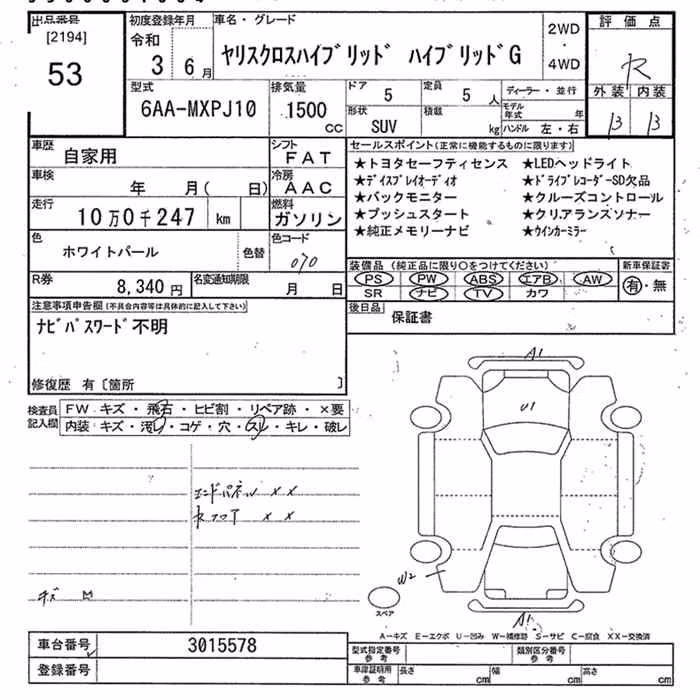 出品番号
[2194]
53
初度登録年月
令和
3 6月
車名・グレード
ヤリスクロスハイブリッド ハイブリッドG
2WD
・
4WD
評価点
R
外装 内装
B B
型式
6AA-MXPJ10
排気量
1500
CC
ドア
5
定員
5 人
形状
SUV
積載
kg
ディーラー・並行
モデル年式 年
ハンドル 左・右
車歴
自家用
シフト
FAT
車検
年 月( 日)
冷房
AAC
走行
10万0千247 km
燃料
ガソリン
色
ホワイトパール
色替
色コード
070
R券
8,340円
名変通知期限
月 日
セールスポイント(正常に機能するものに限ります)
★トヨタセーフティセンス ★LEDヘッドライト
★ディスプレイオーディオ ★ドライブレコーダーSD欠品
★バックモニター ★クルーズコントロール
★プッシュスタート ★クリアランスソナー
★純正メモリーナビ ★ウインカーミラー
装備品 (純正品に限り○をつけてください)
PS PW ABS エアB AW
SR ナビ TV カワ
新車保証書
有・無
後日品
保証書
注意事項申告欄(不具合内容等は具体的に記入して下さい)
ナビパスワード不明
修復歴 有〔箇所 〕
検査員記入欄
FW キズ・飛石・ヒビ割・リペア跡・×要
内装 キズ・汚レ・コゲ・穴・スレ・キレ・破レ
エンドパネル ××
キズ
A1
U1
W2
スペア
A1
A-キズ E-エクボ U-凹み W-補修跡 S-サビ C-腐食 XX-交換済
車台番号
3015578
登録番号
型式指定番号
参考
類別区分番号
参考
車庫証明用
参考
長さ cm
幅 cm
高さ cm